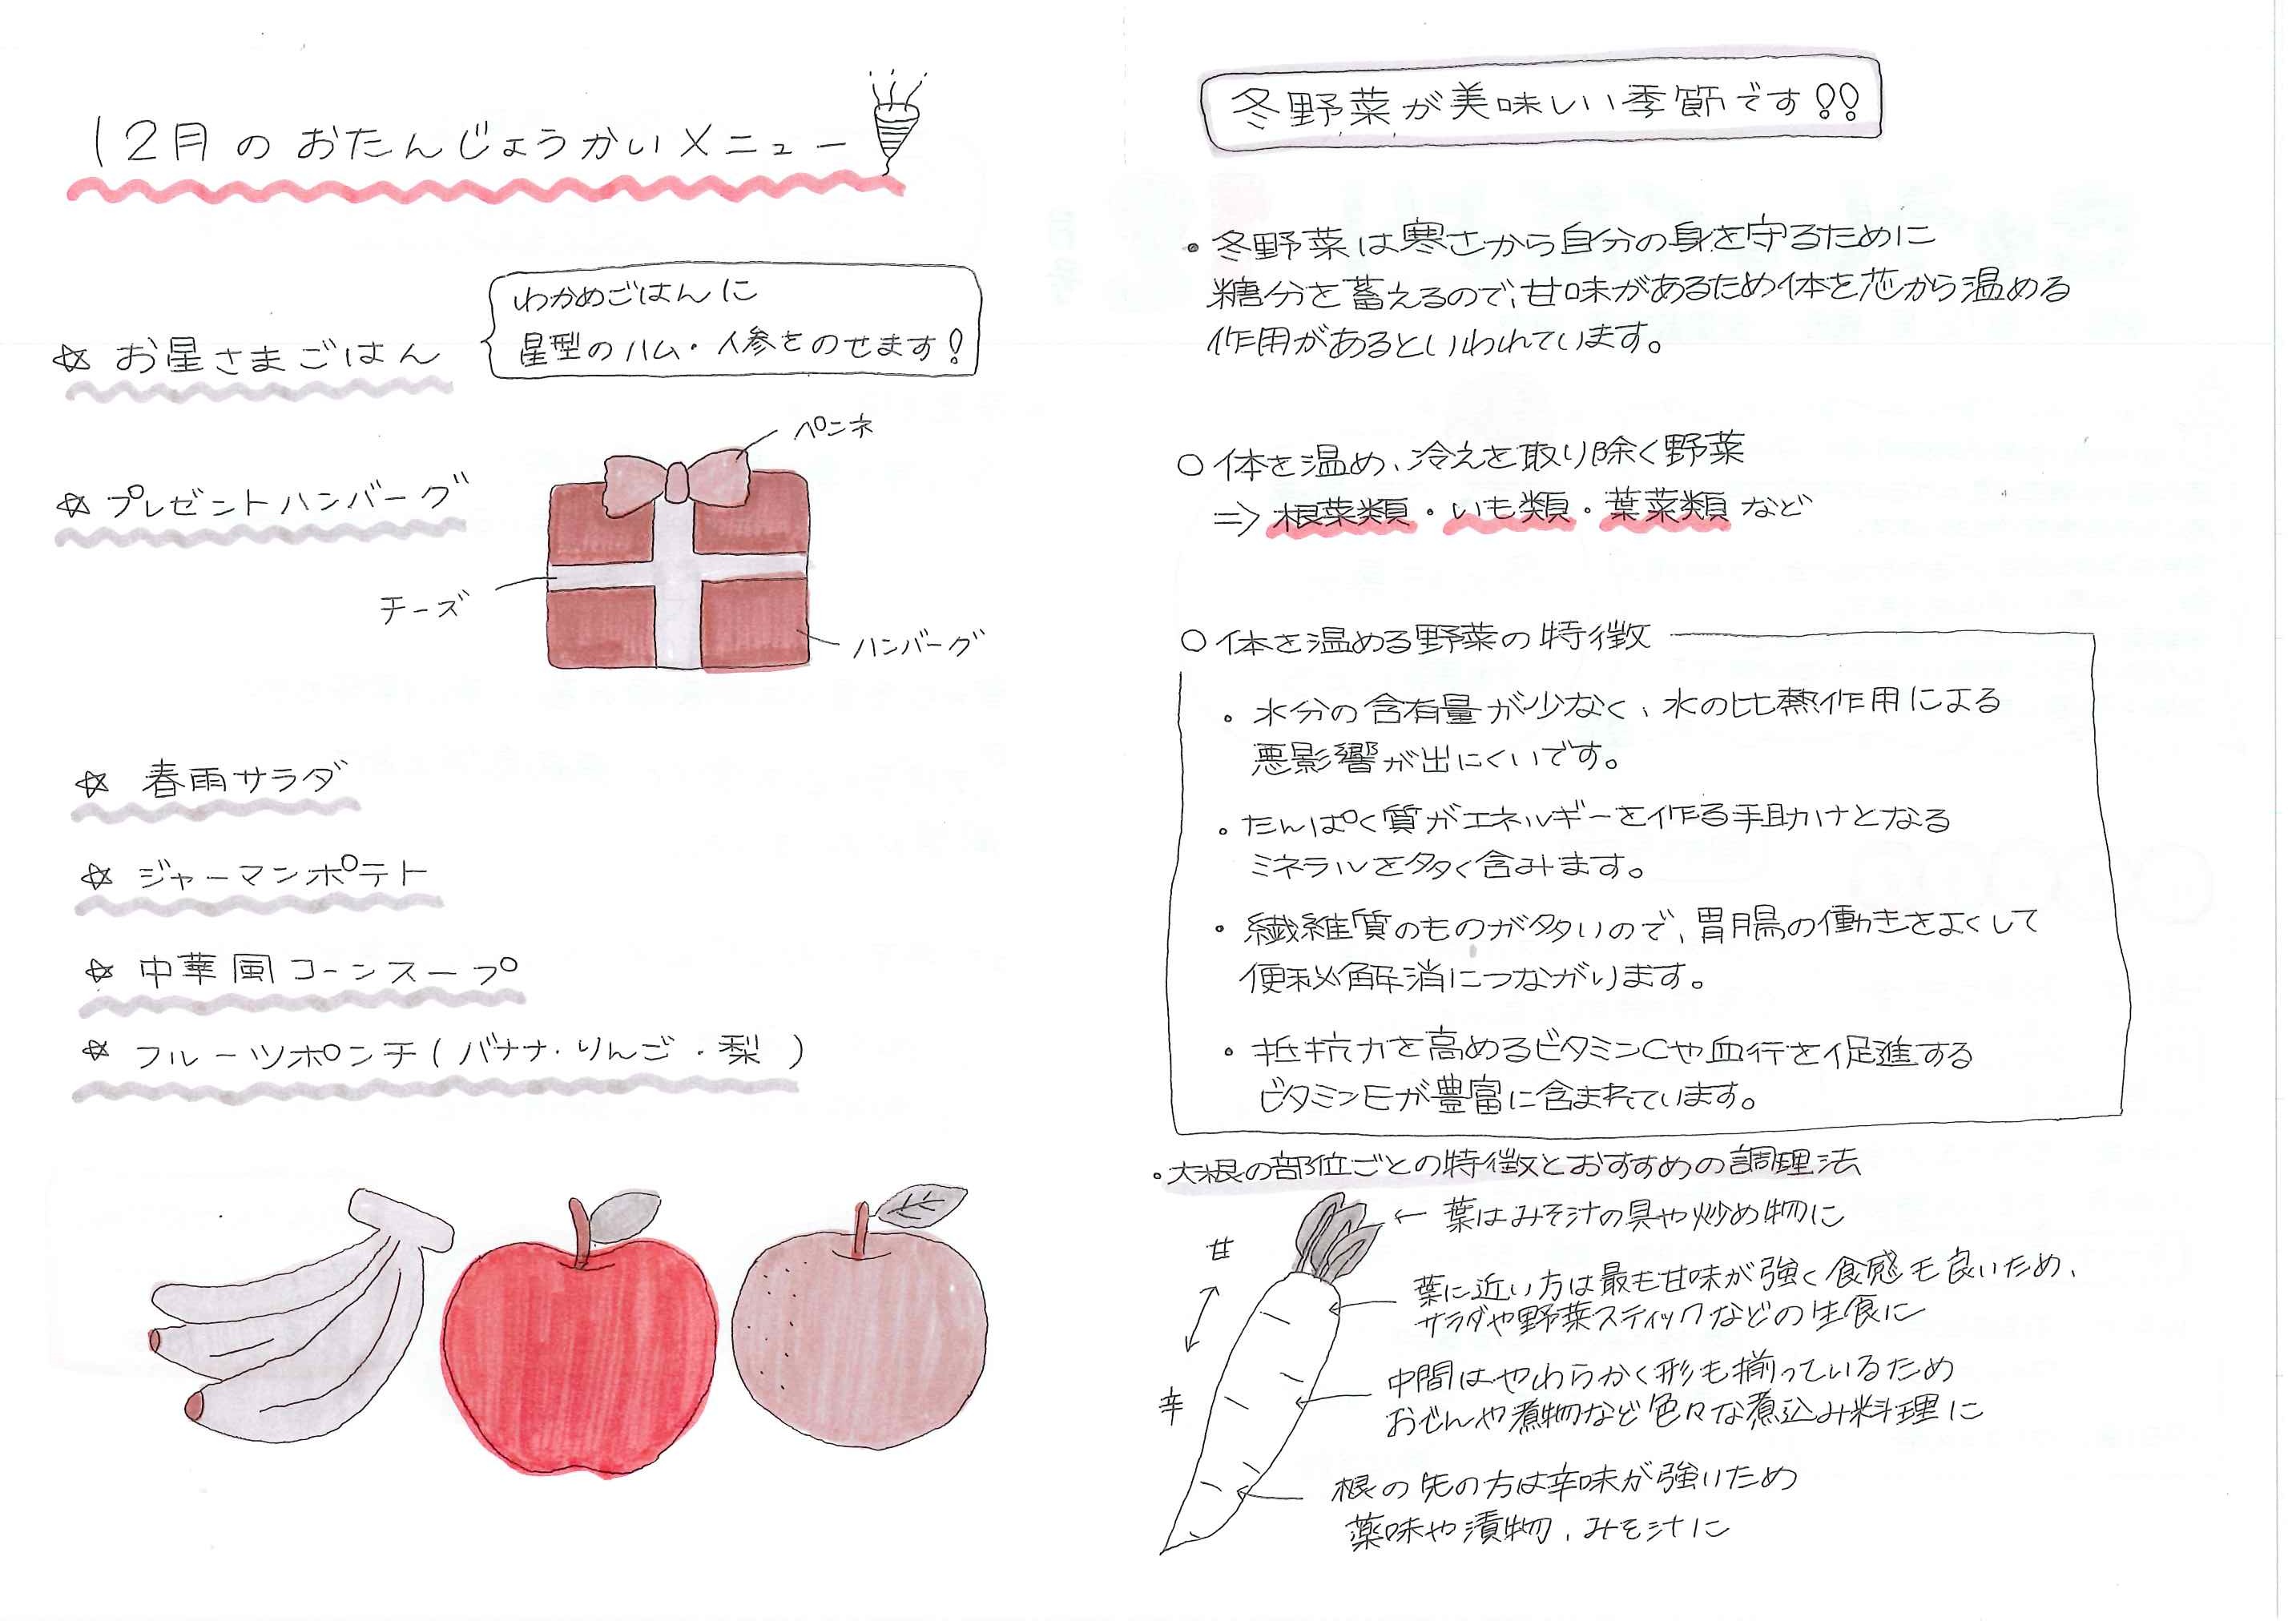 12月のおたんじょうかいメニュー
☆ お星さまごはん
わかめごはんに
星型のハム・人参をのせます!
☆ プレゼントハンバーグ
ペンネ
チーズ
ハンバーグ
☆ 春雨サラダ
☆ ジャーマンポテト
☆ 中華風コーンスープ
☆ フルーツポンチ(バナナ・りんご・梨)
冬野菜が美味しい季節です!!
・冬野菜は寒さから自分の身を守るために
糖分を蓄えるので、甘味があるため体を芯から温める
作用があるといわれています。
○体を温め、冷えを取り除く野菜
⇒根菜類・いも類・葉菜類など
○体を温める野菜の特徴
・水分の含有量が少なく、水の比熱作用による
悪影響が出にくいです。
・たんぱく質がエネルギーを作る手助けとなる
ミネラルを多く含みます。
・繊維質のものが多いので、胃腸の働きをよくして
便秘解消につながります。
・抵抗力を高めるビタミンCや血行を促進する
ビタミンEが豊富に含まれています。
・大根の部位ごとの特徴とおすすめの調理法
←葉はみそ汁の具や炒め物に
甘
葉に近い方は最も甘味が強く食感も良いため、
サラダや野菜スティックなどの生食に
中間はやわらかく形も揃っているため
おでんや煮物など色々な煮込み料理に
辛
根の先の方は辛味が強いため
薬味や漬物、みそ汁に